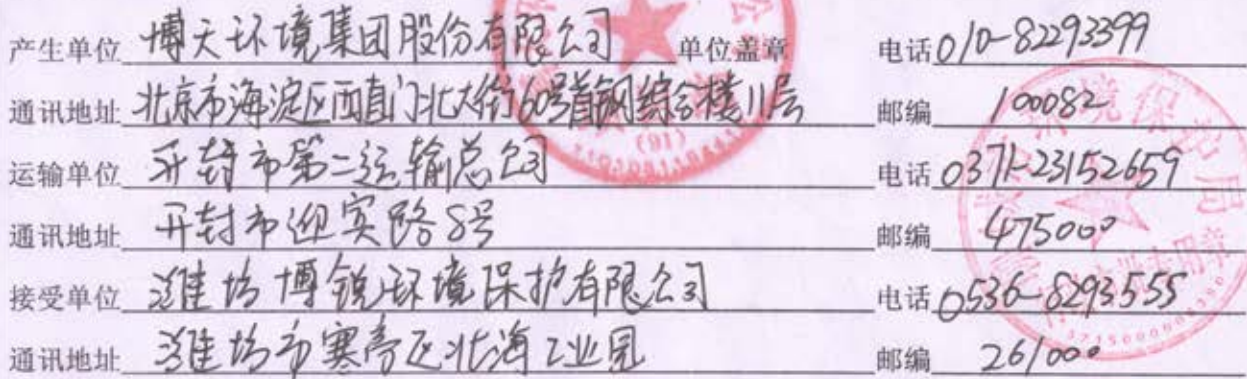 产生单位 博天环境集团股份有限公司 单位盖章 电话 010-82293399
通讯地址 北京市海淀区西直门北大街60号首钢综合楼11层 邮编 100082
运输单位 开封市第二运输总公司 电话 0371-23152659
通讯地址 开封市迎宾路8号 邮编 475000
接受单位 潍坊博锐环境保护有限公司 电话 0536-8293555
通讯地址 潍坊市寒亭区北海工业园 邮编 261000
(91)
环境保护局